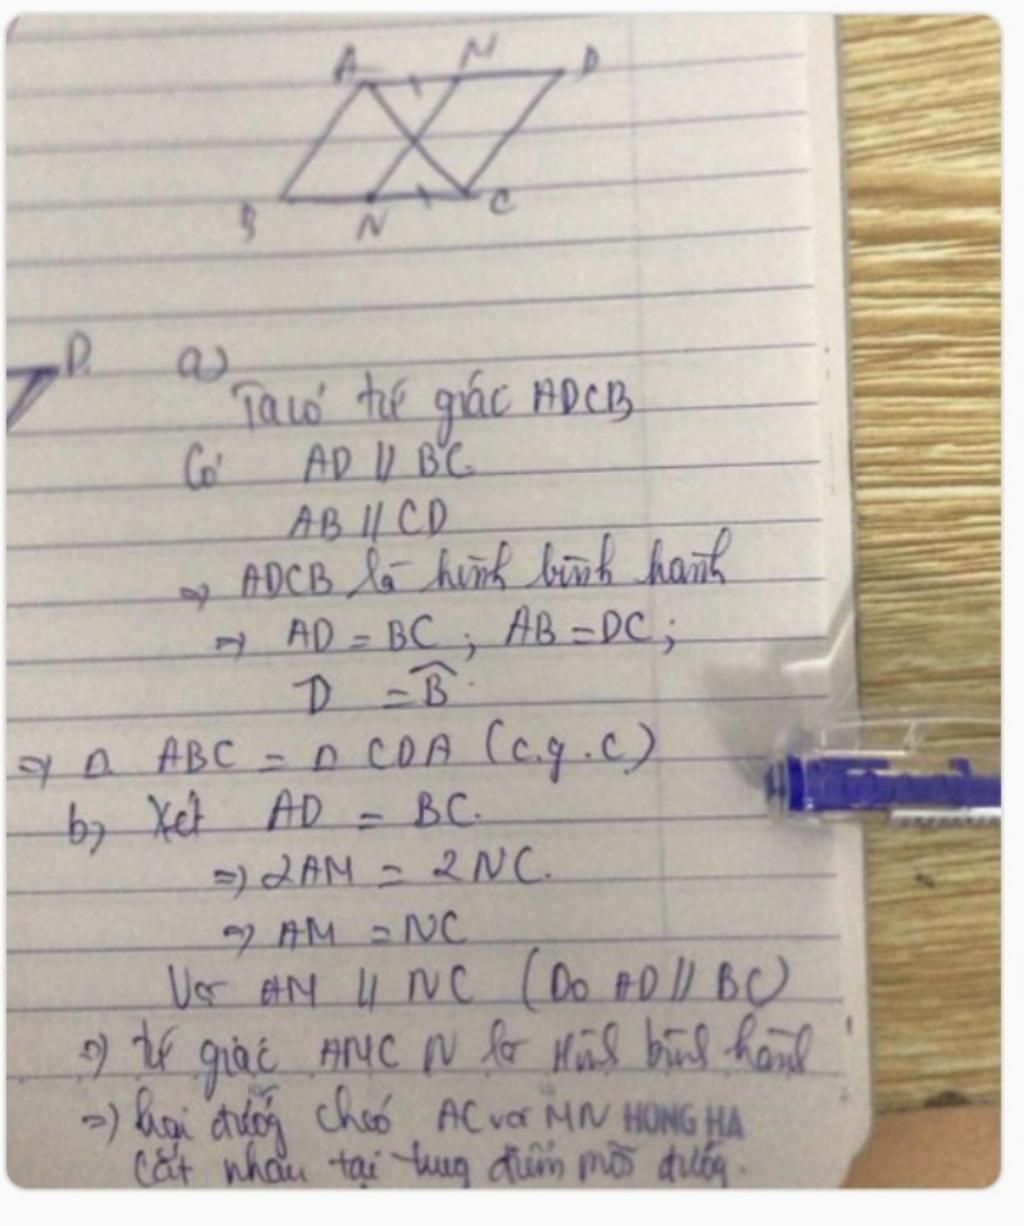 A M D
B N C
D.
a)
Ta có tứ giác ADCB
Có AD // BC.
AB // CD
=> ADCB là hình bình hành
=> AD = BC ; AB = DC ;
D = B̂.
=> Δ ABC = Δ CDA (c.g.c)
b, Xét AD = BC.
=> 2AM = 2NC.
=> AM = NC
Và AM // NC (Do AD // BC)
=> tứ giác AMCN là Hình bình hành
=> hai đường chéo AC và MN HONG HA
cắt nhau tại trung điểm mỗi đường.